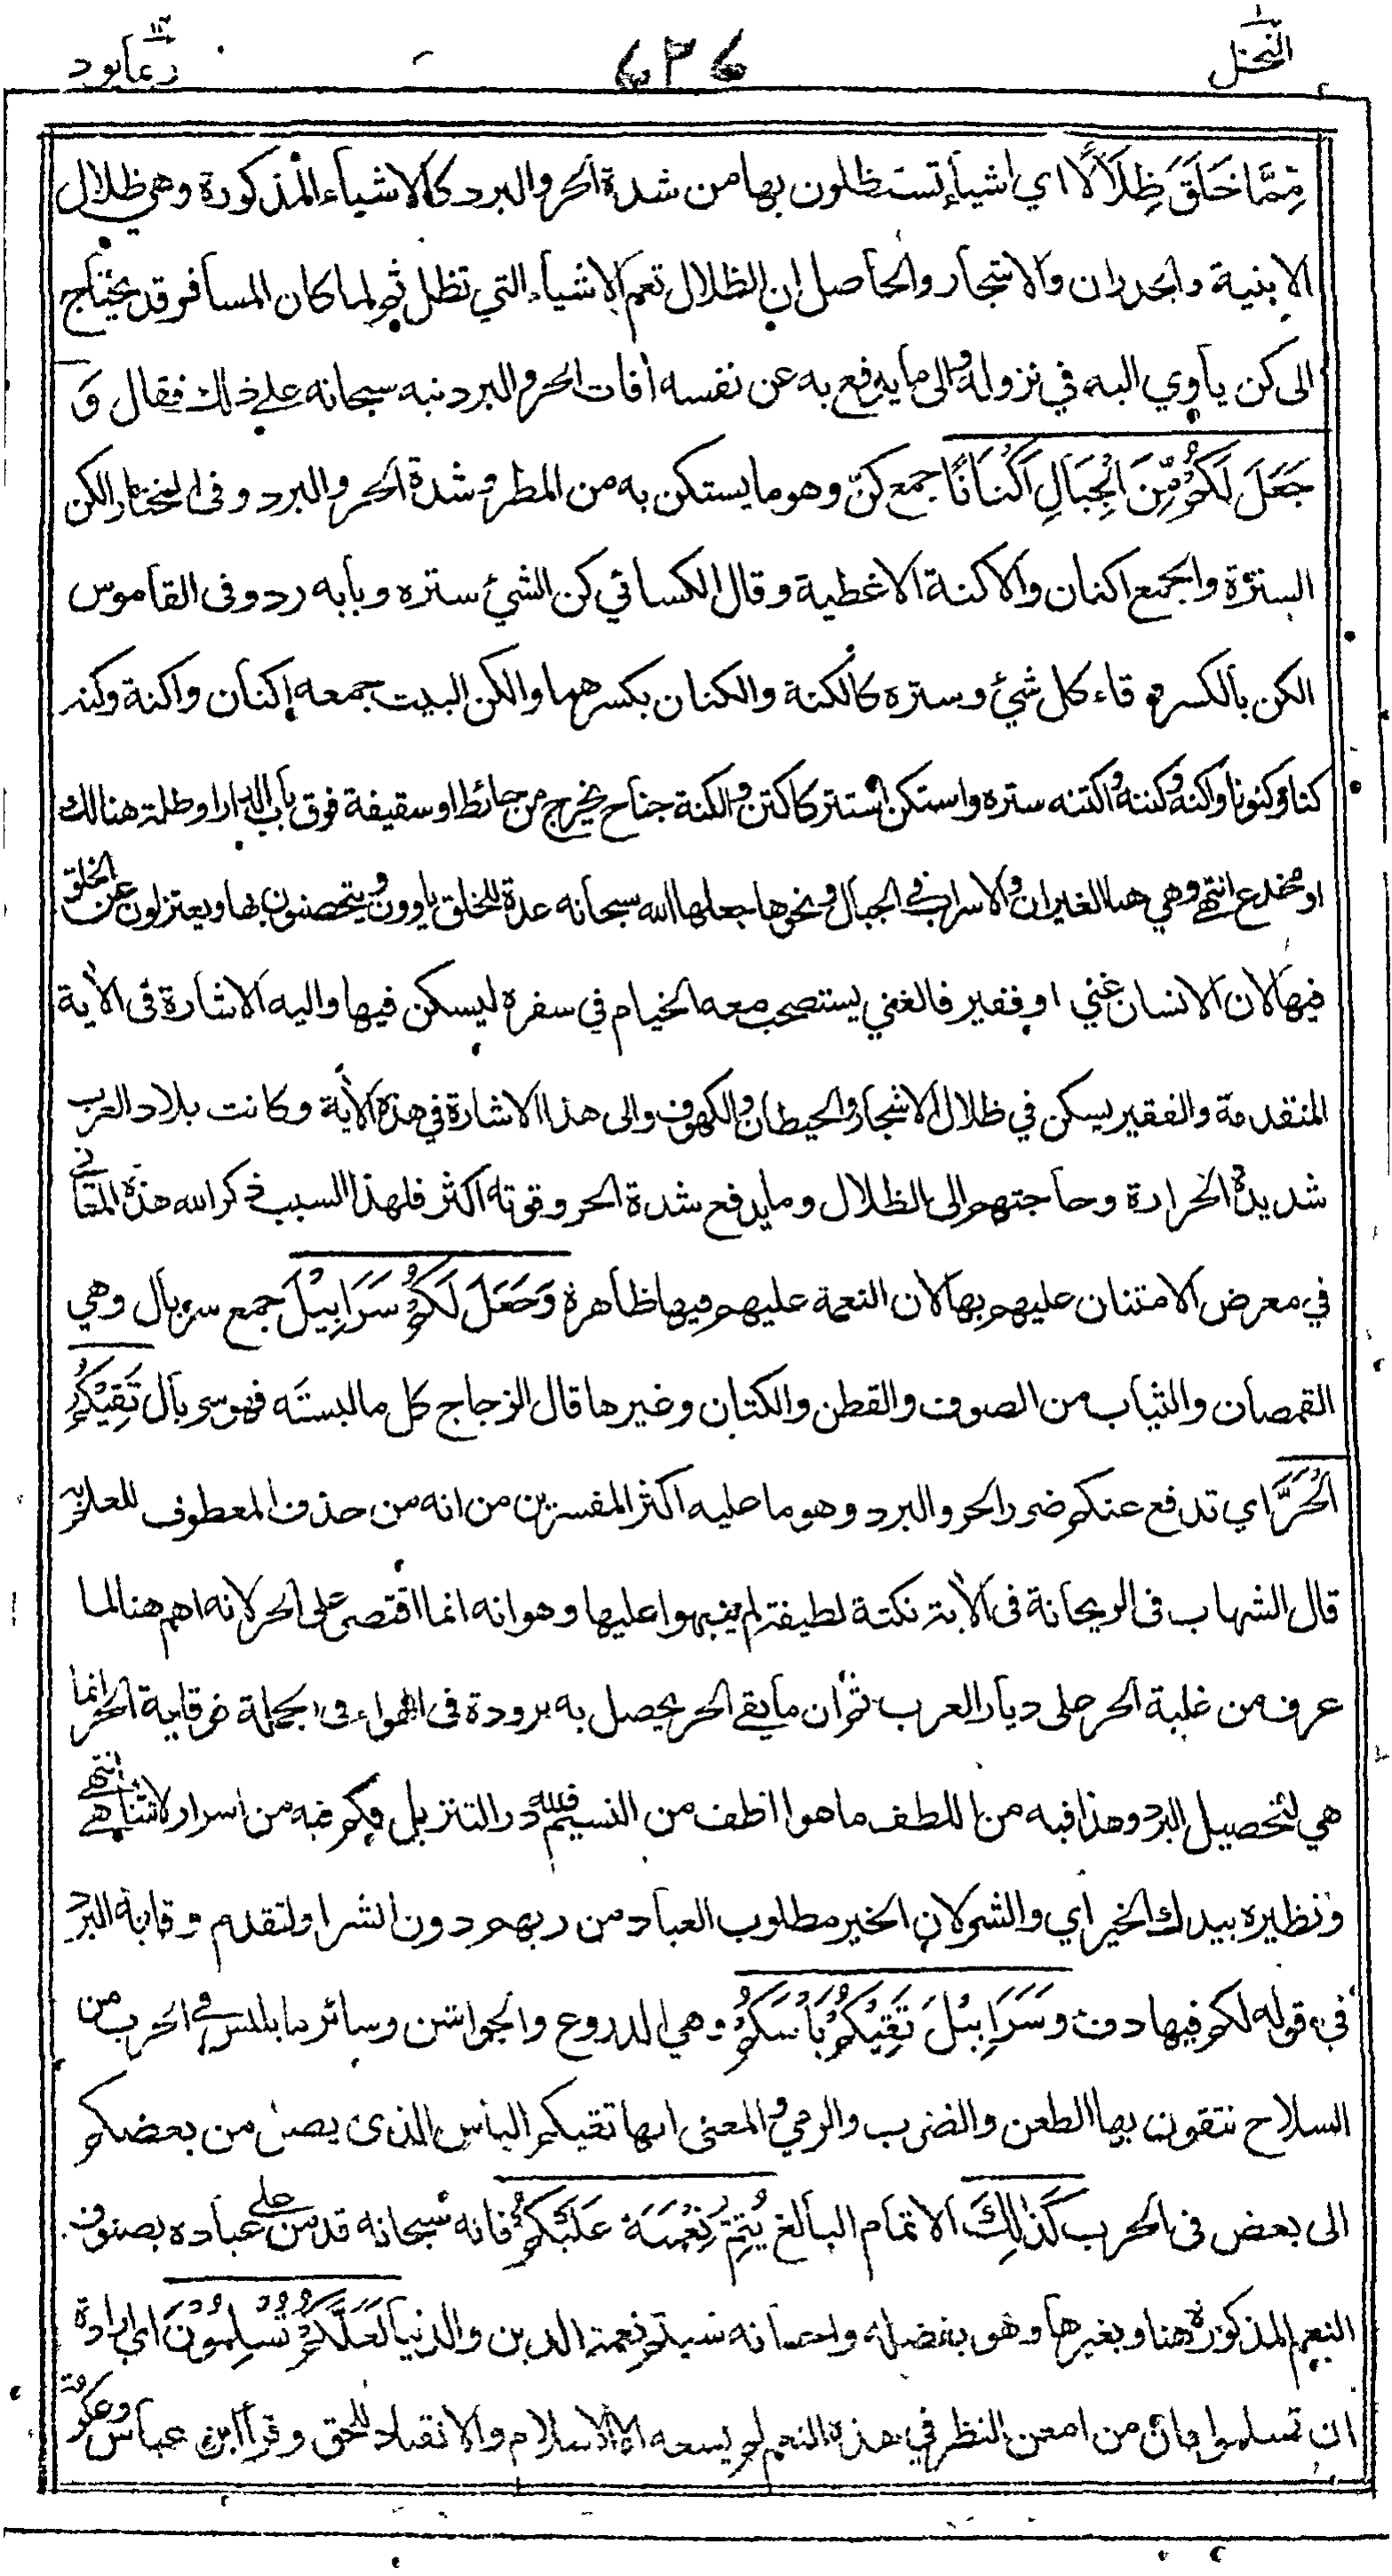 النحل
٦٣٦
ربما يود
مِمَّا خَلَقَ ظِلَالًا اي اشياء تستظلون بها من شدة الحر والبرد كالاشياء المذكورة وهي ظلال
الابنية والجدران والاشجار والحاصل ان الظلال تعم الاشياء التي تظل ثم لما كان المسافر قد يحتاج
الى كن يأوي اليه في نزوله والى ما يدفع به عن نفسه آفات الحر والبرد نبه سبحانه على ذلك فقال وَ
جَعَلَ لَكُمْ مِّنَ الْجِبَالِ اَكْنَانًا جمع كنّ وهو ما يستكن به من المطر وشدة الحر والبرد وفى المختار الكن
السترة والجمع اكنان والاكنة الاغطية وقال الكسائي كن الشيئ ستره وبابه رد وفى القاموس
الكن بالكسر وقاء كل شيئ وستره كالكنة والكنان بكسرهما والكن البيت جمعه اكنان واكنة وكنه
كنا وكنونا واكنه وكننه واكتنه ستره واستكن استتر كاكتن والكنة جناح يخرج من حائط او سقيفة فوق باب الدار او ظلة هنالك
او مخدع انتهى وهي هنا الغيران والاسراب في الجبال ونحوها جعلها الله سبحانه عدة للخلق ياوون ويتحصنون بها ويعتزلون عن الخلق
فيها لان الانسان غني او فقير فالغني يستصحب معه الخيام في سفره ليسكن فيها واليه الاشارة فى الآية
المتقدمة والفقير يسكن في ظلال الاشجار والحيطان والكهوف والى هذا الاشارة في هذه الآية وكانت بلاد العرب
شديدة الحرارة وحاجتهم الى الظلال وما يدفع شدة الحر وقوته اكثر فلهذا السبب ذكر الله هذه المعاني
في معرض الامتنان عليهم بها لان النعمة عليهم فيها ظاهرة وَجَعَلَ لَكُمْ سَرَابِيْلَ جمع سربال وهي
القمصان والثياب من الصوف والقطن والكتان وغيرها قال الزجاج كل ما لبسته فهو سربال تَقِيْكُمُ
الْحَرَّ اي تدفع عنكم ضرر الحر والبرد وهو ما عليه اكثر المفسرين من انه من حذف المعطوف للعلم به
قال الشهاب فى الريحانة فى الآية نكتة لطيفة لم ينبهوا عليها وهو انه انما اقتصر على الحر لانه اهم هنا لما
عرف من غلبة الحر على ديار العرب ثم ان ما يقي الحر يحصل به برودة فى الهواء فى الجملة فوقاية الحر انما
هي لتحصيل البرد وهذا فيه من اللطف ما هو الطف من النسيم فلله در التنزيل فكم فيه من اسرار لا تتناهى انتهى
ونظيره بيدك الخير اي والشر لان الخير مطلوب العباد من ربهم دون الشر او لتقدم وقاية البرد
في قوله لكم فيها دفء وَسَرَابِيْلَ تَقِيْكُمْ بَاْسَكُمْ وهي الدروع والجواشن وسائر ما يلبس في الحرب من
السلاح تتقون بها الطعن والضرب والرمي والمعنى انها تقيكم البأس الذى يصل من بعضكم
الى بعض فى الحرب كَذٰلِكَ الاتمام البالغ يُتِمُّ نِعْمَتَهٗ عَلَيْكُمْ فانه سبحانه قد من على عباده بصنوف
النعم المذكورة هنا وبغيرها وهو بفضله واحسانه سيتم نعمة الدين والدنيا لَعَلَّكُمْ تُسْلِمُوْنَ اي ارادة
ان تسلموا فان من امعن النظر في هذه النعم لم يسعه الا الاسلام والانقياد للحق وقرأ ابن عباس وعكرمة